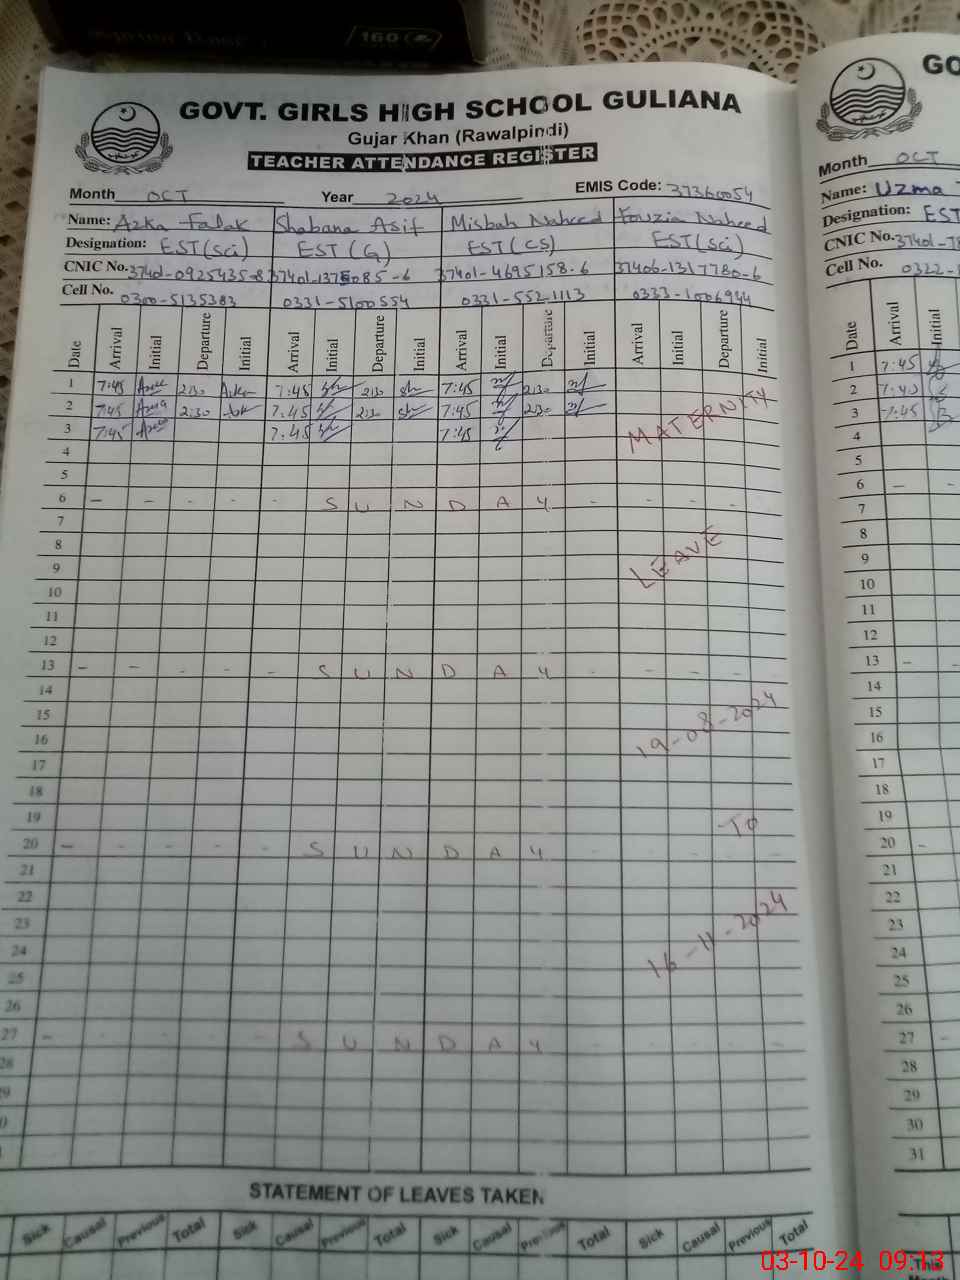 160
GOVT. GIRLS HIGH SCHOOL GULIANA
Gujar Khan (Rawalpindi)
TEACHER ATTENDANCE REGISTER
Month OCT Year 2024 EMIS Code: 37360054
Name: Azka Falak Shabana Asif Misbah Naheed Fouzia Naheed
Designation: EST(sci) EST(G) EST(CS) EST(sci)
CNIC No. 37401-0925435-8 37401-1375085-6 37401-4695158-6 37406-1317780-6
Cell No. 0300-5135383 0331-5100554 0331-5521113 0333-1006944
Date Arrival Initial Departure Initial Arrival Initial Departure Initial Arrival Initial Departure Initial Arrival Initial Departure Initial
1 7:45 2:30 7:45 2:30 7:45 2:30
2 7:45 2:30 7:45 2:30 7:45 2:30
3 7:45 7:45 7:45
MATERNITY
4
5
6 - - - - - SUNDAY - - - -
7
8
9 LEAVE
10
11
12
13 - - - - - SUNDAY - - - -
14
15
16 19-08-2024
17
18
19 TO
20 - - - - - SUNDAY - - - -
21
22
23
24 16-11-2024
25
26
27 - - - - - SUNDAY - - - -
28
STATEMENT OF LEAVES TAKEN
Sick Causal Previous Total Sick Causal Previous Total Sick Causal Previous Total Sick Causal Previous Total
GO
Month OCT
Name: Uzma
Designation: EST
CNIC No. 37401-
Cell No. 0322-1
Date Arrival Initial
1 7:45
2 7:45
3 7:45
4
5
6 - -
7
8
9
10
11
12
13 -
14
15
16
17
18
19
20 -
21
22
23
24
25
26
27 -
28
29
30
31
This
03-10-24 09:13